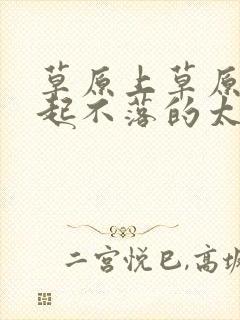 草原上草原
起不落的太
二宫悦巳,高坂